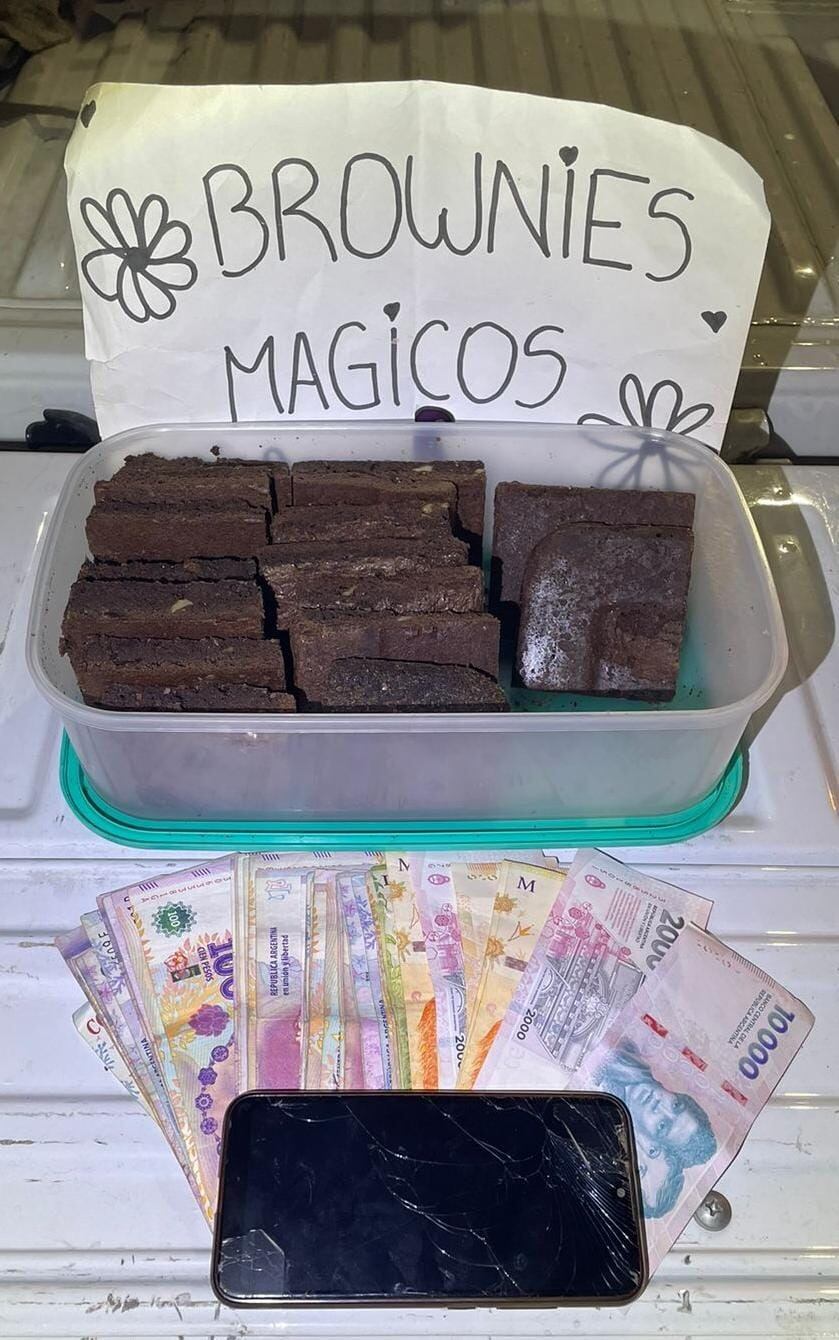 BROWNIES
MAGICOS
100
REPUBLICA ARGENTINA
en unión y libertad
M
M
2000
2000
BANCO CENTRAL DE LA
REPUBLICA ARGENTINA
10000